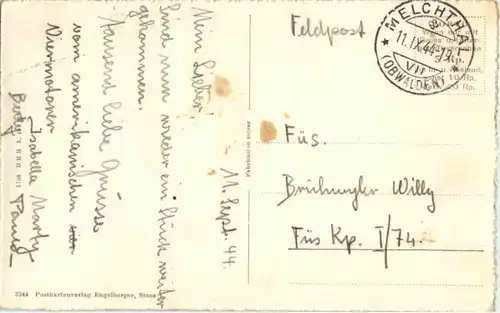 11. Sept. 44.
Mein Lieber
Sind nun wieder ein Stück weiter
gekommen.
Tausend liebe Grüsse
vom amerikanischen
Viermotoner
Isabella Marty
Feldpost
MELCHTHAL
11.IX.44
VII
(OBWALDEN)
Füs.
Brühwyler Willy
Füs Kp. I/74.
2344 Postkartenverlag Engelberger, Stans